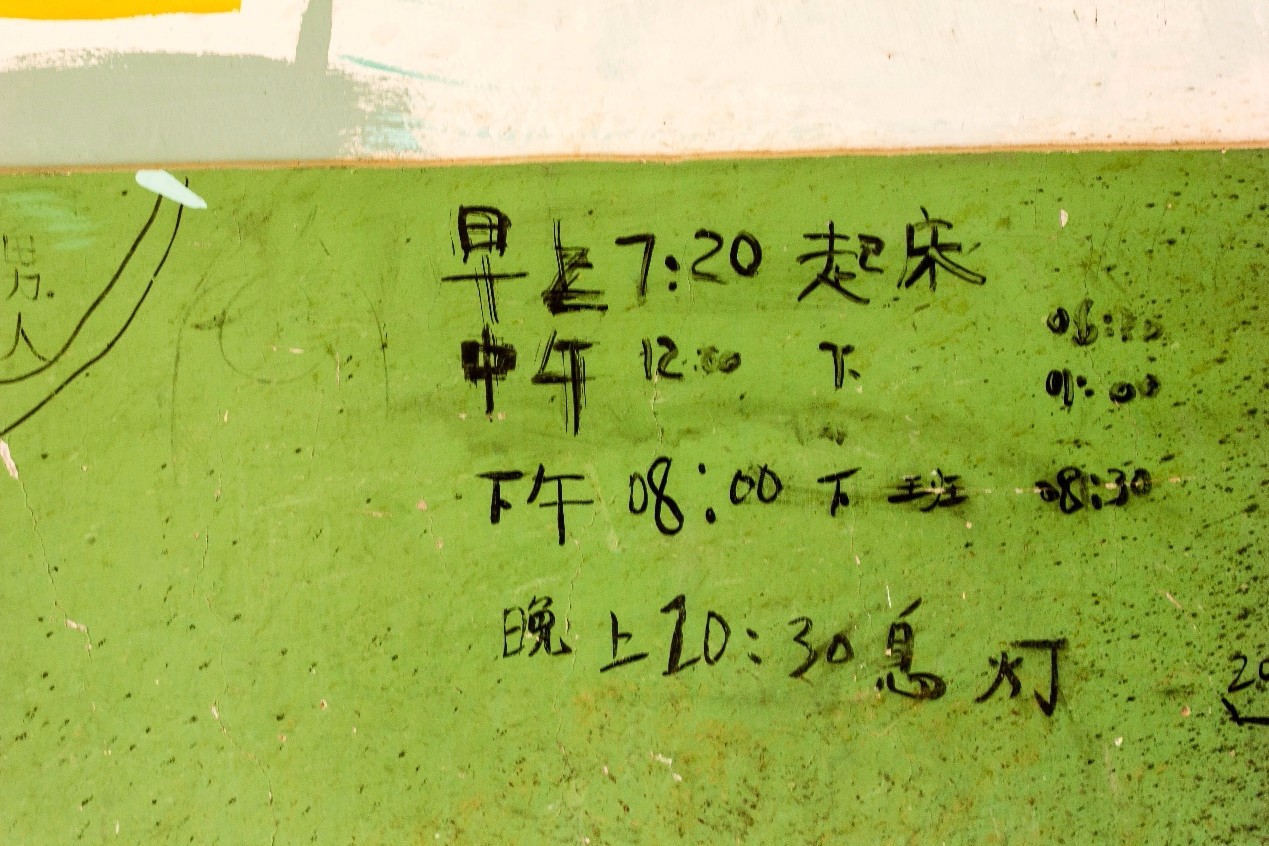 男
人
早上7:20 起床
中午 12:00 下
下午 08:00 下班 08:30
晚上10:30 息灯